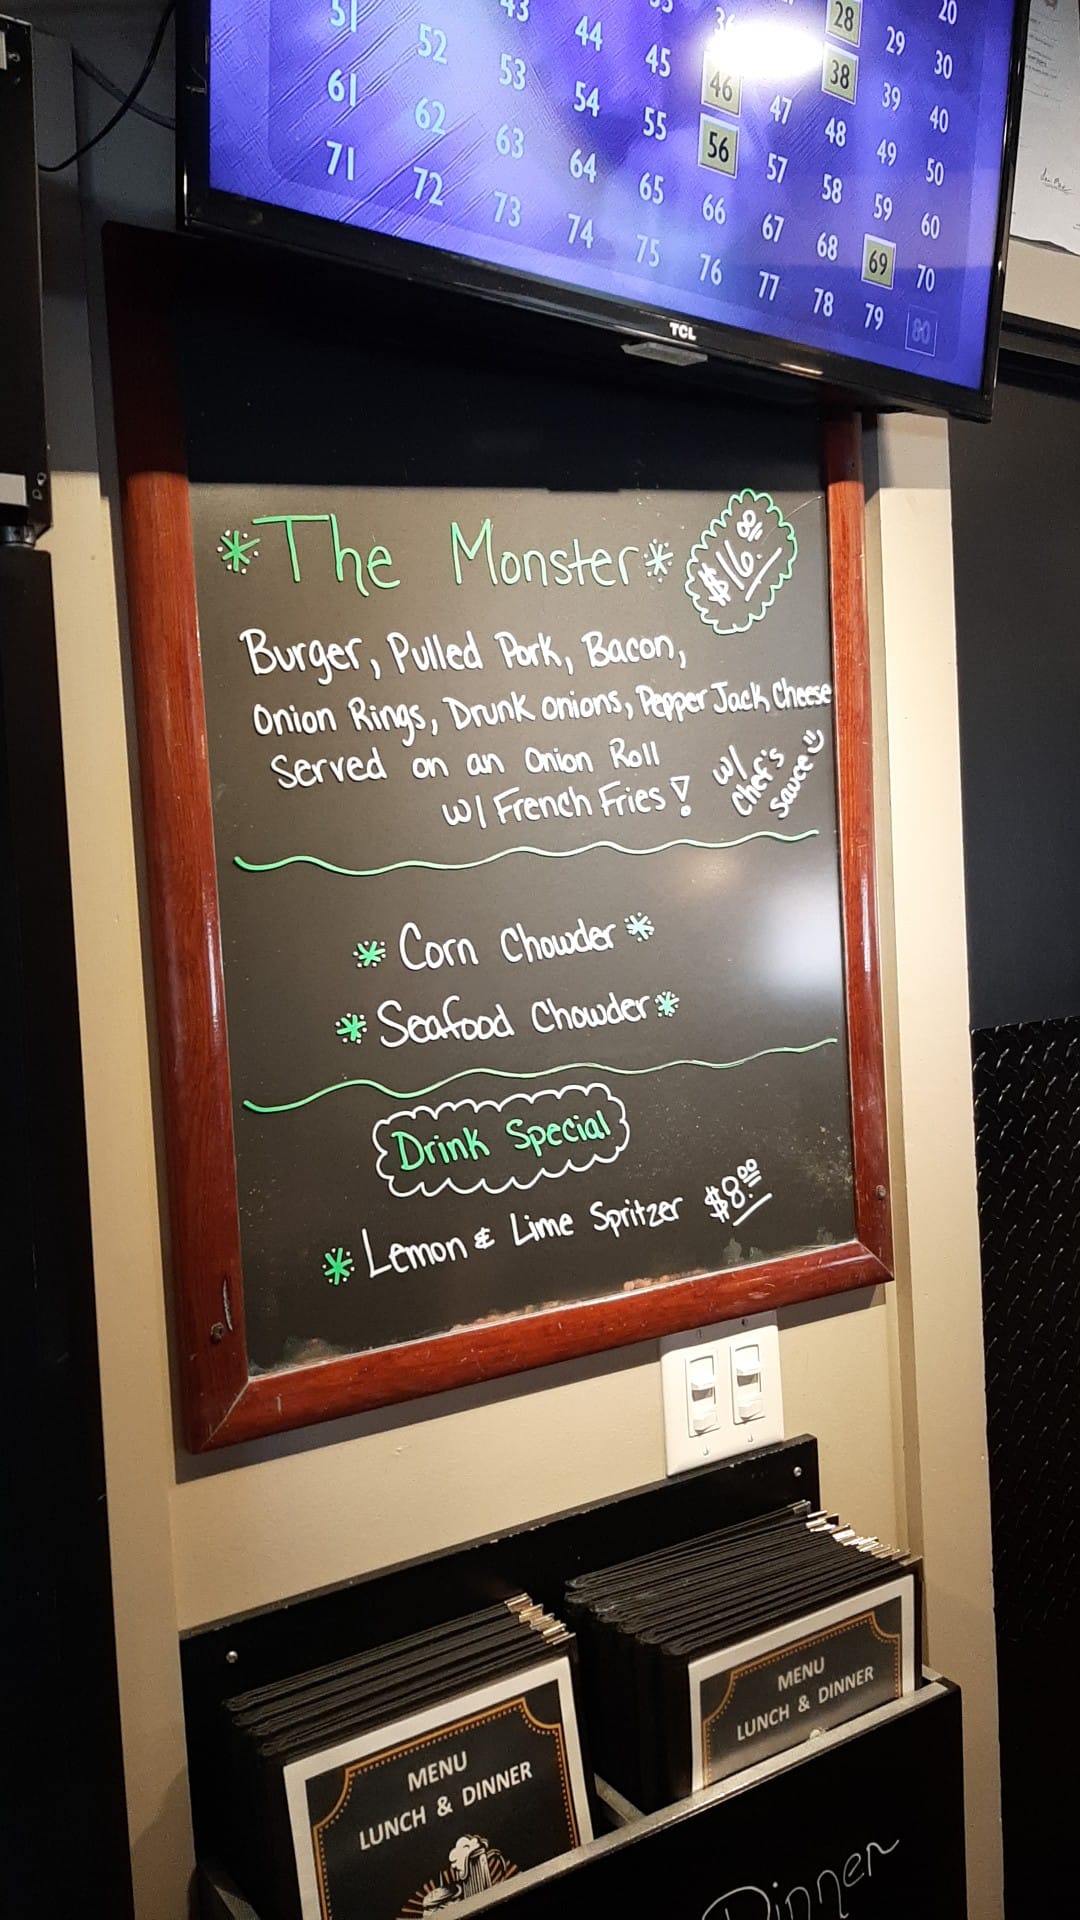 43 35 36 28 20
51 52 44 45 46 38 29 30
61 53 54 55 47 48 39 40
62 63 64 56 57 49 50
71 72 73 74 65 66 67 58 59 60
75 76 77 68 69 70
78 79 80
TCL
The Monster $16.00
Burger, Pulled Pork, Bacon,
Onion Rings, Drunk onions, Pepper Jack Cheese
Served on an Onion Roll
w/ French Fries!
w/
Chef's
sauce
Corn Chowder
Seafood Chowder
Drink Special
Lemon & Lime Spritzer $8.00
MENU
LUNCH & DINNER
MENU
LUNCH & DINNER
Dinner